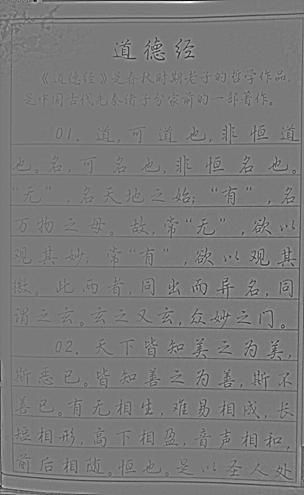 道德经
《道德经》是春秋时期老子的哲学作品,
是中国古代先秦诸子分家前的一部著作。
01. 道,可道也,非恒道
也。名,可名也,非恒名也。
“无”,名天地之始;“有”,名
万物之母。故,常“无”,欲以
观其妙;常“有”,欲以观其
徼。此两者,同出而异名,同
谓之玄。玄之又玄,众妙之门。
02. 天下皆知美之为美,
斯恶已。皆知善之为善,斯不
善已。有无相生,难易相成,长
短相形,高下相盈,音声相和,
前后相随。恒也。是以圣人处